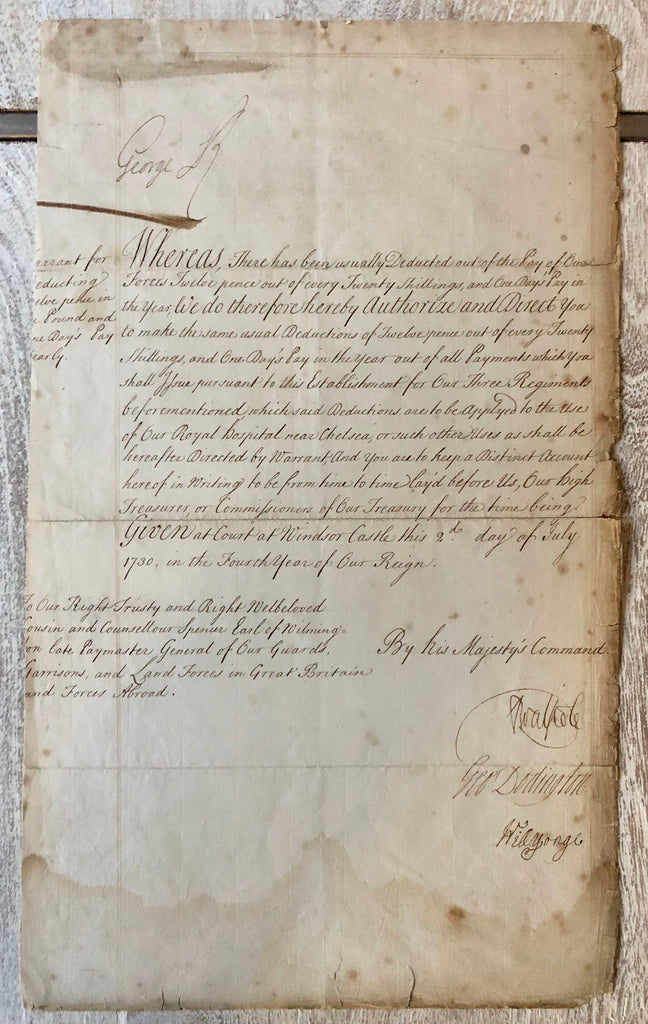 George R
arrant for
educting
elve pence in
e Pound and
ne Day's Pay
early.
Whereas, There has been usually Deducted out of the Pay of Our
Forces Twelve pence out of every Twenty Shillings, and One Day's Pay in
the Year, We do therefore hereby Authorize and Direct You
to make the same usual Deductions of Twelve pence out of every Twenty
Shillings, and One Day's Pay in the Year out of all Payments which You
shall Issue pursuant to this Establishment for Our Three Regiments
beforemention'd, which said Deductions are to be Apply'd to the Use
of Our Royal Hospital near Chelsea, or such other Uses as shall be
hereafter Directed by Warrant And You are to keep a Distinct Account
hereof in Writing to be from time to time lay'd before Us, Our High
Treasurer, or Commissioners of Our Treasury for the time being
Given at Court at Windsor Castle this 2d. day of July
1730, in the Fourth Year of Our Reign.
To Our Right Trusty and Right Welbeloved
ousin and Counsellour Spencer Earl of Wilming=
on late Paymaster General of Our Guards,
Garrisons, and Land Forces in Great Britain
and Forces Abroad.
By his Majesty's Command.
RWalpole
Geo Dodington.
Will Yonge